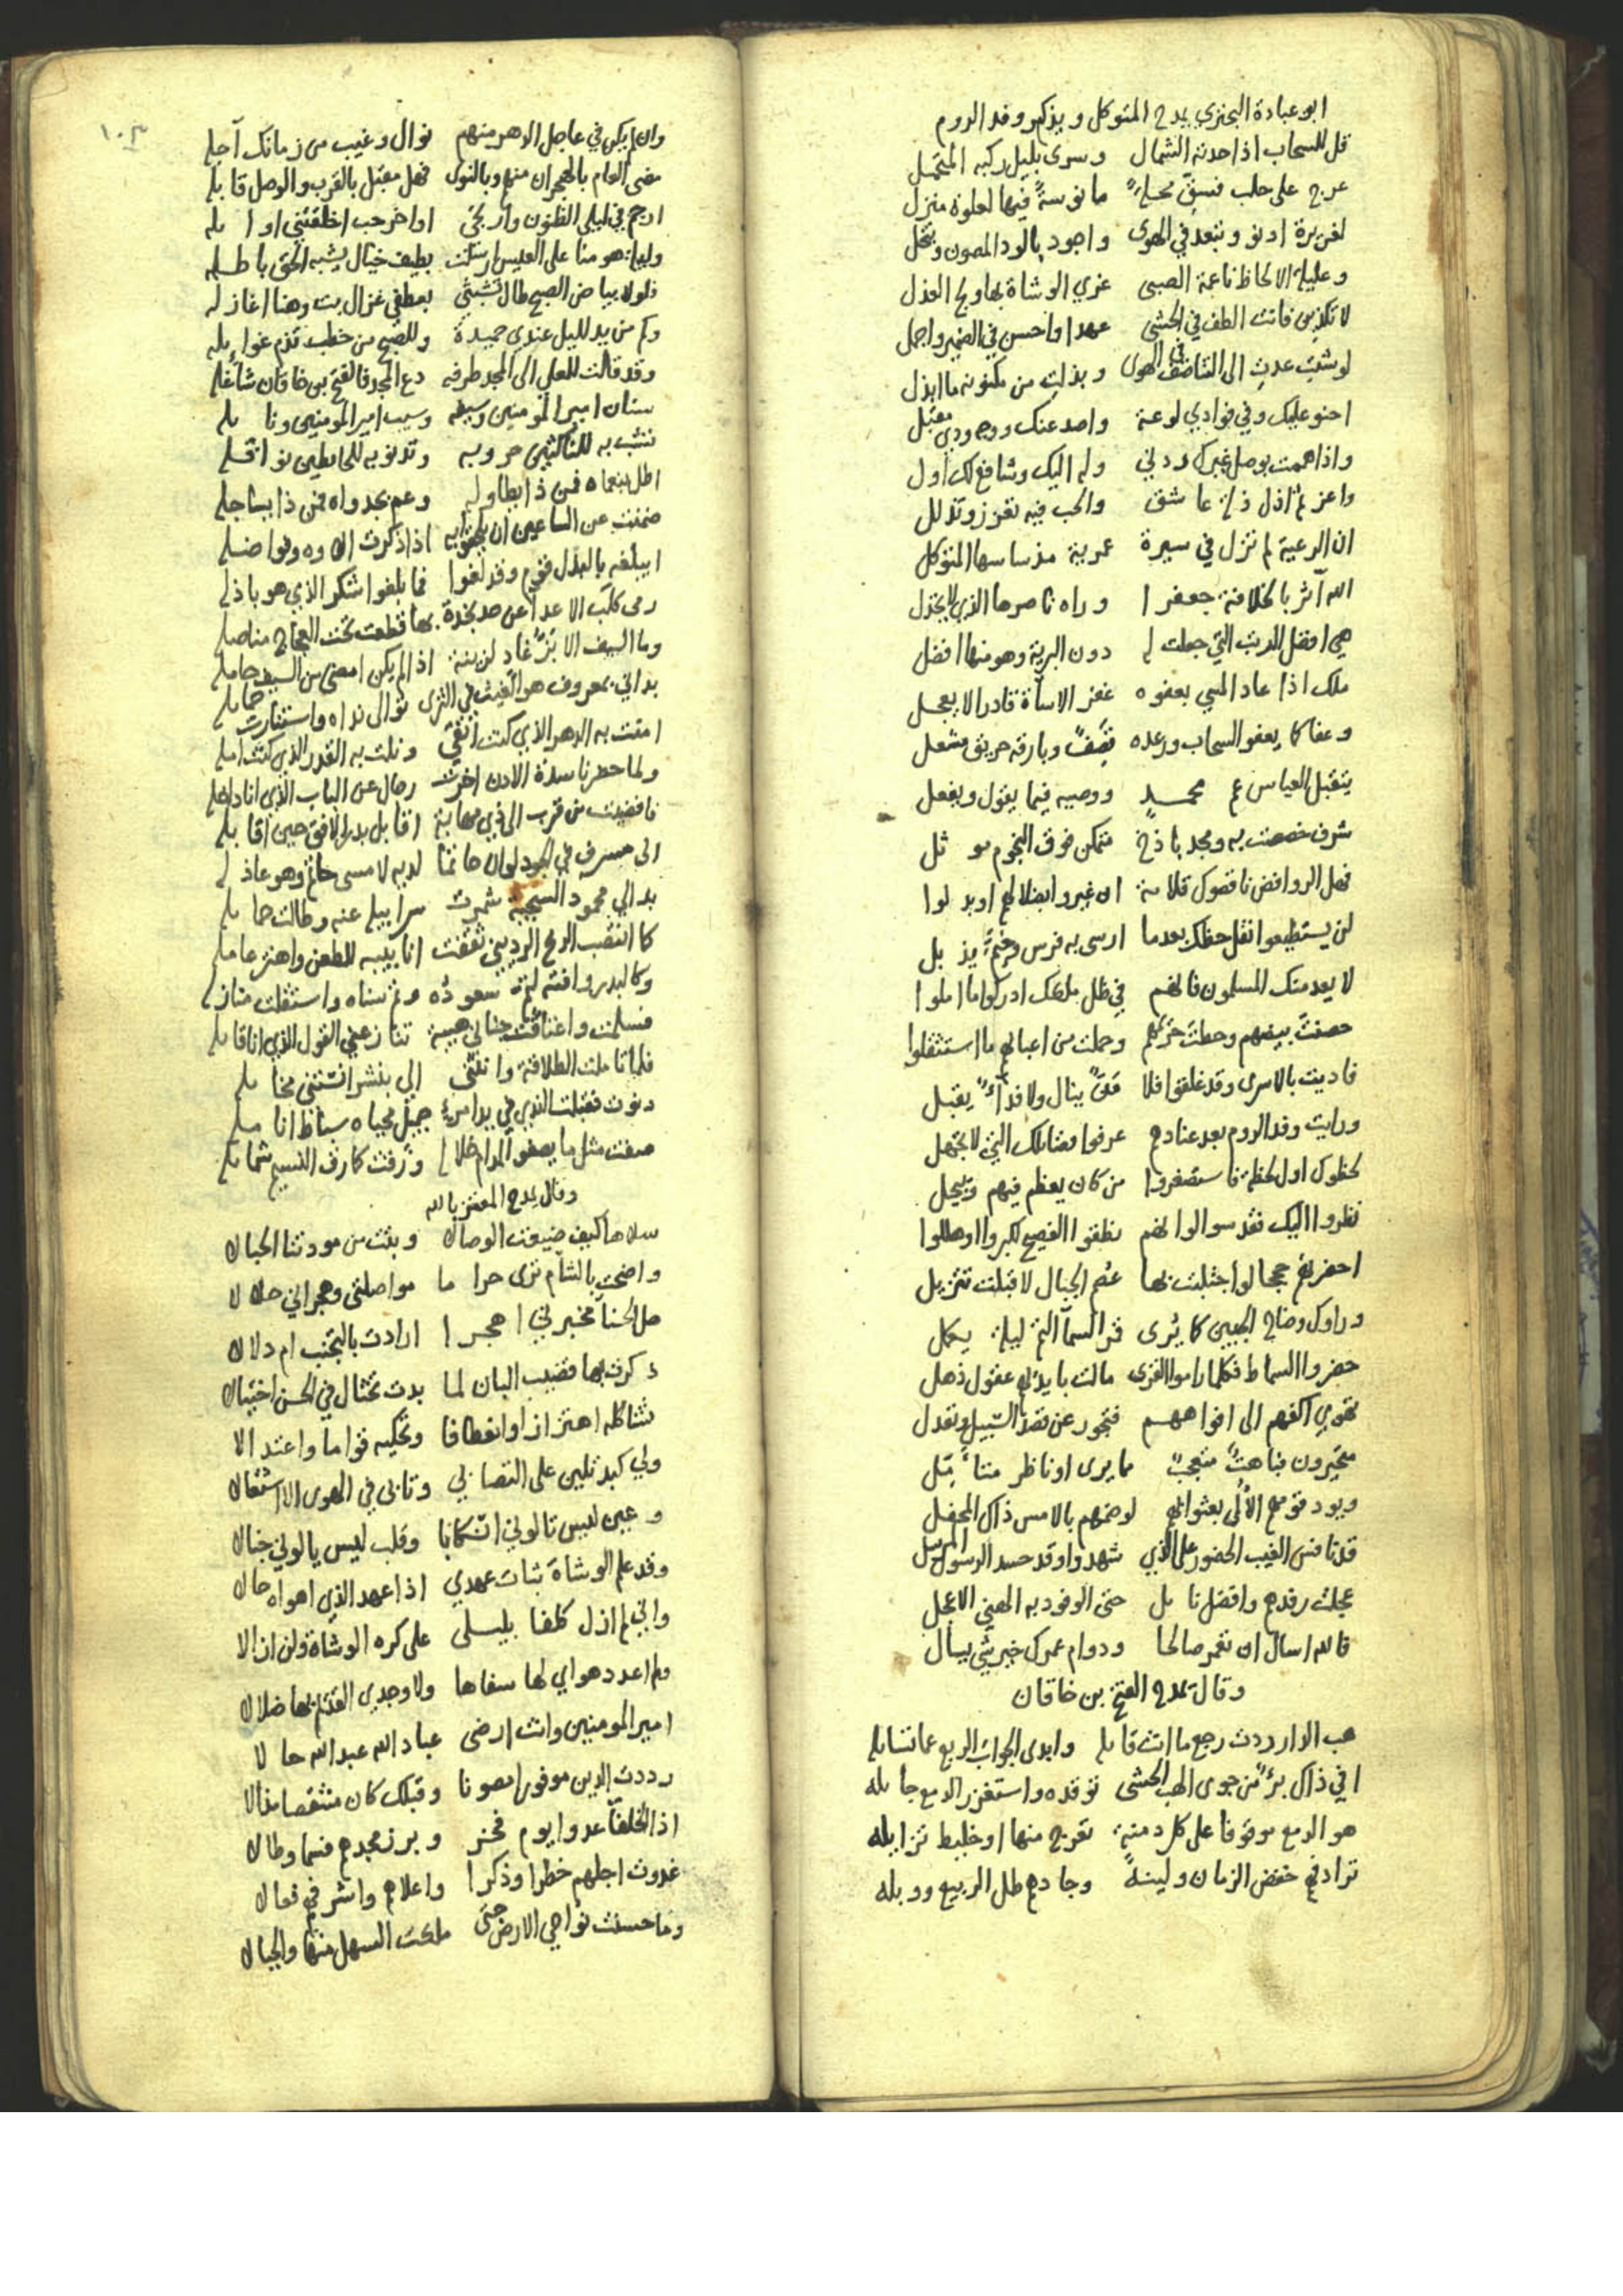 ابو عبادة البحتري يمدح المتوكل ويذكر وفد الروم
قل للسحاب اذا حدته الشمال وسرى بليل ركبه المتحمل
عرج على حلب فحي محلة ما نوسة فيها لعلوة منزل
لغريرة ادنو وتبعد في الهوى واجود بالود المصون وتبخل
وعليلة الالحاظ ناعمة الصبى غري الوشاة بها ولج العذل
لا تكذبن فانت الطف في الحشى عهدا واحسن في الضمير واجمل
لو شئت عدت الى التناصف في الهوى وبذلت من مكنونه ما ابذل
احنو عليك وفي فوادي لوعة واصد عنك ووجه ودي مقبل
واذا هممت بوصل غيرك ردني وله اليك وشافع لك اول
واعز ثم اذل ذلة عاشق والحب فيه تعزز وتذلل
ان الرعية لم تزل في سيرة عمرية مذ ساسها المتوكل
الله آثر بالخلافة جعفرا وراه ناصرها الذي لا يخذل
هي افضل الرتب التي جعلت له دون البرية وهو منها افضل
ملك اذا عاد المسي بعفوه غفر الاساة قادرا لا يعجل
وعفا كما يعفو السحاب ورعده قصف وبارقه حريق مشعل
يتقبل العباس عم محمد ووصيه فيما يقول ويفعل
شرف خصصت به ومجد باذخ متمكن فوق النجوم موثل
فعل الروافض ناقصوك قلامة ان غيروا بضلالهم او بدلوا
لن يستطيعوا نقل حقك بعدما ارسى به قرس وخيم يذبل
لا يعدمنك المسلمون فانهم في ظل ملكك ادركوا ما املوا
حصنت بيضهم وحطت حريمهم وحملت من اعبائهم ما استثقلوا
فاديت بالاسرى وقد غلقوا فلا من ينال ولا فداء يقبل
ورايت وفد الروم بعد عنادهم عرفوا فضائلك التي لا تجهل
لحظوك اول لحظة فاستصغروا من كان يعظم فيهم ويبجل
نظروا اليك فقدسوا ولو انهم نطقوا الفصيح لكبروا او هللوا
احضرتهم حججا لو اجتلبت بها عصم الجبال لاقبلت تتنزل
وراوك وضاح الجبين كما يرى قمر السمآ التم ليلة يكمل
حضروا السماط فكلما راموا القرى مالت بايديهم عقول ذهل
تهوي اكفهم الى افواههم فتجور عن قصد السبيل وتعدل
متحيرون فباهت متعجب مما يرى او ناظر متامل
ويود قومهم الألى بعثوا بهم لو ضمهم بالامس ذاك المحفل
قد نافس الغيب الحضور على الذي شهدوا وقد حسد الرسول المرسل
عجلت رفدهم وافضل نائل حتى الوفود به الهني الاعجل
فالله اسال ان تعمر صالحا ودوام عمرك خير شي يسال
وقال يمدح الفتح بن خاقان
هب الدار ردت رجع ما انت قايله وابدى الجواب الربع عما تسايله
افي ذاك برء من جوى الهب الحشى توقده واستغزر الدمع جايله
هو الدمع موقوفا على كل دمنة تعرج منها او خليط تزايله
ترادفهم خفض الزمان ولينه وجادهم طل الربيع ووبله
١٠٣
وان لم يكن في عاجل الدهر منهم نوال وغيب من زمانك آجله
مضى العام بالهجران منهم وبالنوى فهل مقبل بالقرب والوصل قابله
ارجم في ليلى الظنون وارتجى اواخر حب اخلفتني اوايله
وليلة هومنا على العيس ارسلت بطيف خيال يشبه الحق باطله
فلولا بياض الصبح طال تشبثي بعطفي غزال بت وهنا اغازله
وكم من يد لليل عندي حميدة وللصبح من خطب تذم غوايله
وقد قالت للمعلي الى المجد طرفه دع المجد فالفتح بن خاقان شاغله
سنان امير المومنين وسيفه وسيب امير المومنين ونايله
تشب به للناكثين حروبه وتدنو به للخابطين نوافله
اطل بنعماه فمن ذا يطاوله وعم بجدواه فمن ذا يساجله
ضمنت عن الساعين ان يلحقوا به اذا ذكرت آلاوه وفواضله
ايبلغه بالبذل قوم وقد لغوا فما بلغوا شكر الذي هو باذله
رمى كلب الاعدا عن حد نجدة بها قطعت تحت العجاج مناصله
وما السيف الا بز غاد لزينة اذا لم يكن امضى من السيف حامله
بداني بمعروف هو الغيث في الثرى توالى نداه واستنارت خمايله
امنت به الدهر الذي كنت اتقي ونلت به القدر الذي كنت آمله
ولما حضرنا سدة الاذن اخرت رجال عن الباب الذي انا داخله
فافضيت من قرب الى ذي مهابة اقابل بدر الافق حين اقابله
الى مسرف في الجود لو ان حاتما لديه لامسى حاتم وهو عاذله
بدا لي محمود السجية شمرت سرابيله عنه وطالت حمايله
كما انتصب الرمح الرديني ثقفت انابيبه للطعن واهتز عامله
وكالبدر وافته لتم سعوده وتم سناه واستقلت منازله
فسلمت واعتاقت جناني هيبة تنازعني القول الذي انا قايله
فلما تاملت الطلاقة وانثنى الي ببشر انستني مخايله
دنوت فقبلت الندى في يد امرئ جميل محياه سباط انامله
صفت مثل ما يصفو المدام خلاله ورقت كما رق النسيم شمايله
وقال يمدح المعتز بالله
سلاها كيف ضيعت الوصالا وبتت من مودتنا الحبالا
واضحت بالشآم ترى حراما مواصلتي وهجراني حلالا
هل الحسنآ مخبرتي اهجرا ارادت بالتجنب ام دلالا
ذكرت بها قضيب البان لما بدت تختال في الحسن اختيالا
تشاكله اهتزازا وانعطافا وتحكيه قواما واعتدالا
ولي كبد تلين على التصابي وتابى في الهوى الا اشتعالا
وعين ليس تالوني انسكابا وقلب ليس يالوني خبالا
وقد علم الوشاة ثبات عهدي اذا عهد الذي اهواه حالا
واني لم ازل كلفا بليلى على كره الوشاة ولن ازالا
ولم اعدد هواي لها سفاها ولا وجدي القديم بها ضلالا
امير المومنين وانت ارضى عباد الله عبد الله حالا
رددت الدين موفورا مصونا وقبلك كان منتقصا مذالا
اذا الخلفآ عدوا يوم فخر وبرز مجدهم فسما وطالا
غدوت اجلهم خطرا وذكرا واعلاهم واشرفهم فعالا
وما حسنت نواحي الارض حتى ملكت السهل منها والجبالا